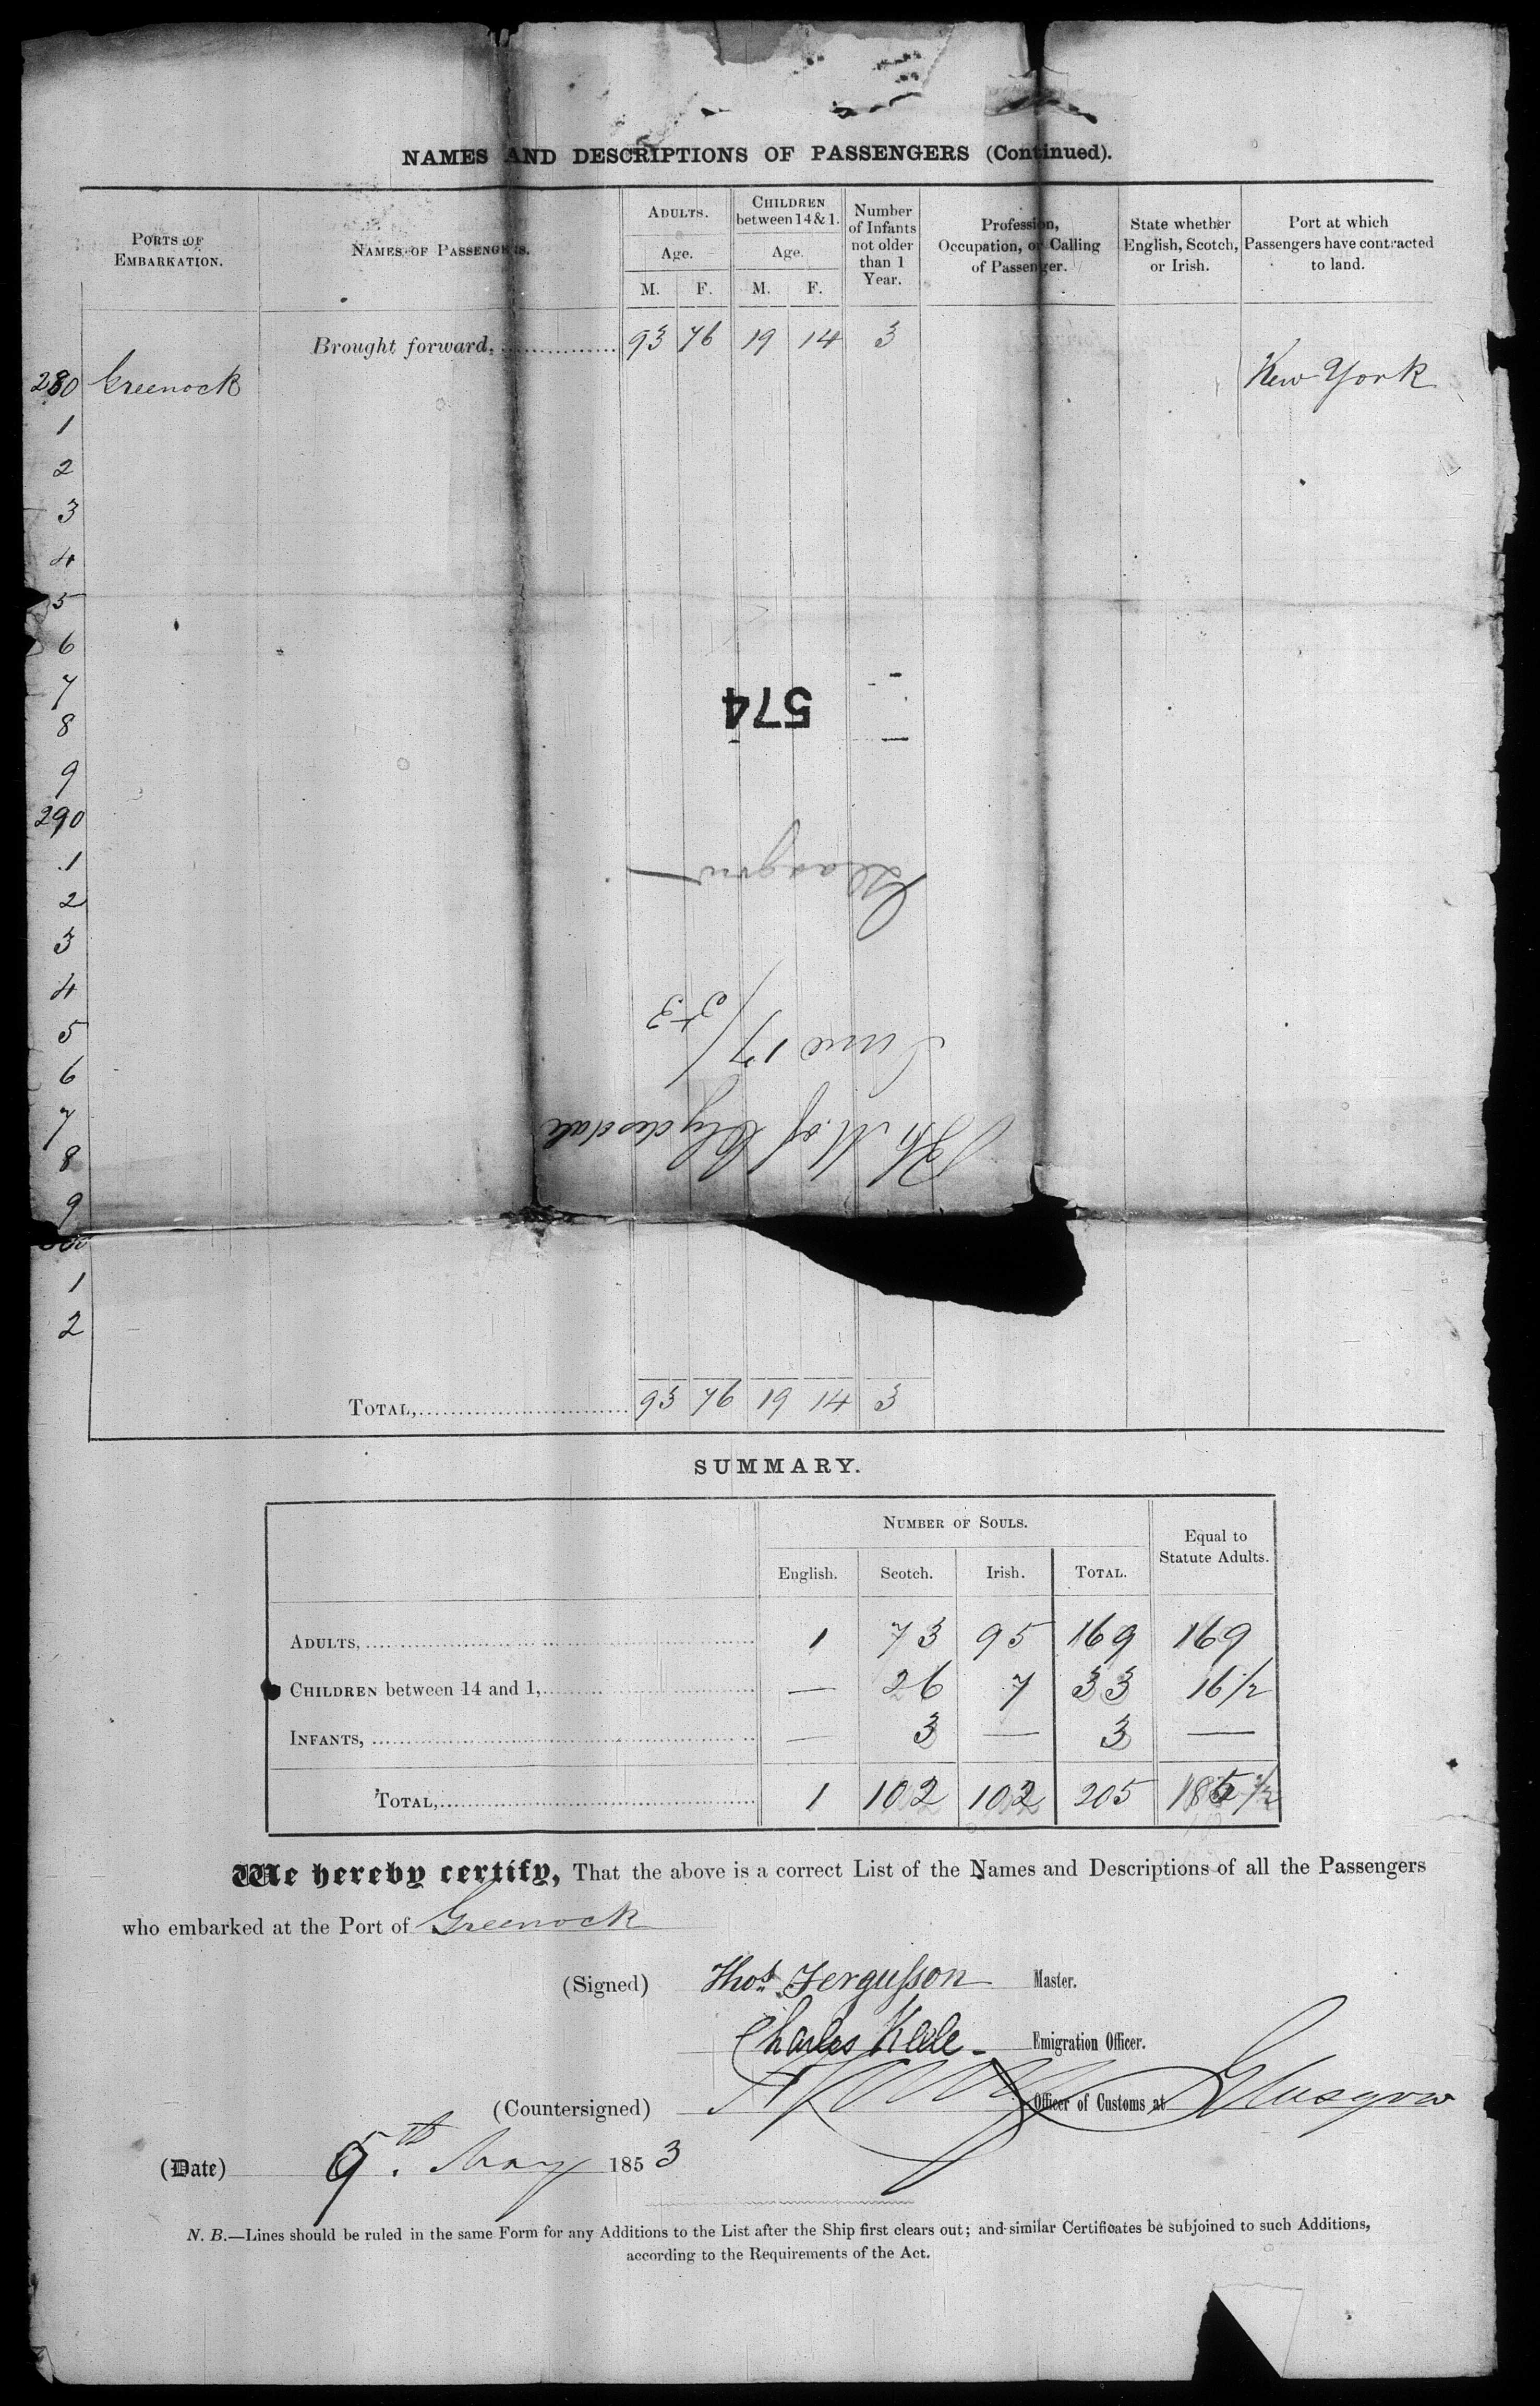 NAMES AND DESCRIPTIONS OF PASSENGERS (Continued).
PORTS OF EMBARKATION.
NAMES OF PASSENGERS.
ADULTS.
Age.
M. F.
CHILDREN between 14 & 1.
Age.
M. F.
Number of Infants not older than 1 Year.
Profession, Occupation, or Calling of Passenger.
State whether English, Scotch, or Irish.
Port at which Passengers have contracted to land.
Brought forward, 93 76 19 14 3
280 Greenock New York
1
2
3
4
5
6
7
8
9
290
1
2
3
4
5
6
7
8
9
300
1
2
574
Glasgow
June 17/53
Sh. M. of Clydesdale
TOTAL, 93 76 19 14 3
SUMMARY.
NUMBER OF SOULS.
English. Scotch. Irish. TOTAL. Equal to Statute Adults.
ADULTS, 1 73 95 169 169
CHILDREN between 14 and 1, — 26 7 33 16 1/2
INFANTS, — 3 — 3 —
TOTAL, 1 102 102 205 185 1/2
We hereby certify, That the above is a correct List of the Names and Descriptions of all the Passengers
who embarked at the Port of Greenock
(Signed) Thos. Fergusson Master.
Charles Keele Emigration Officer.
(Countersigned) Officer of Customs at Glasgow
(Date) May 1853
N. B.—Lines should be ruled in the same Form for any Additions to the List after the Ship first clears out; and similar Certificates be subjoined to such Additions,
according to the Requirements of the Act.